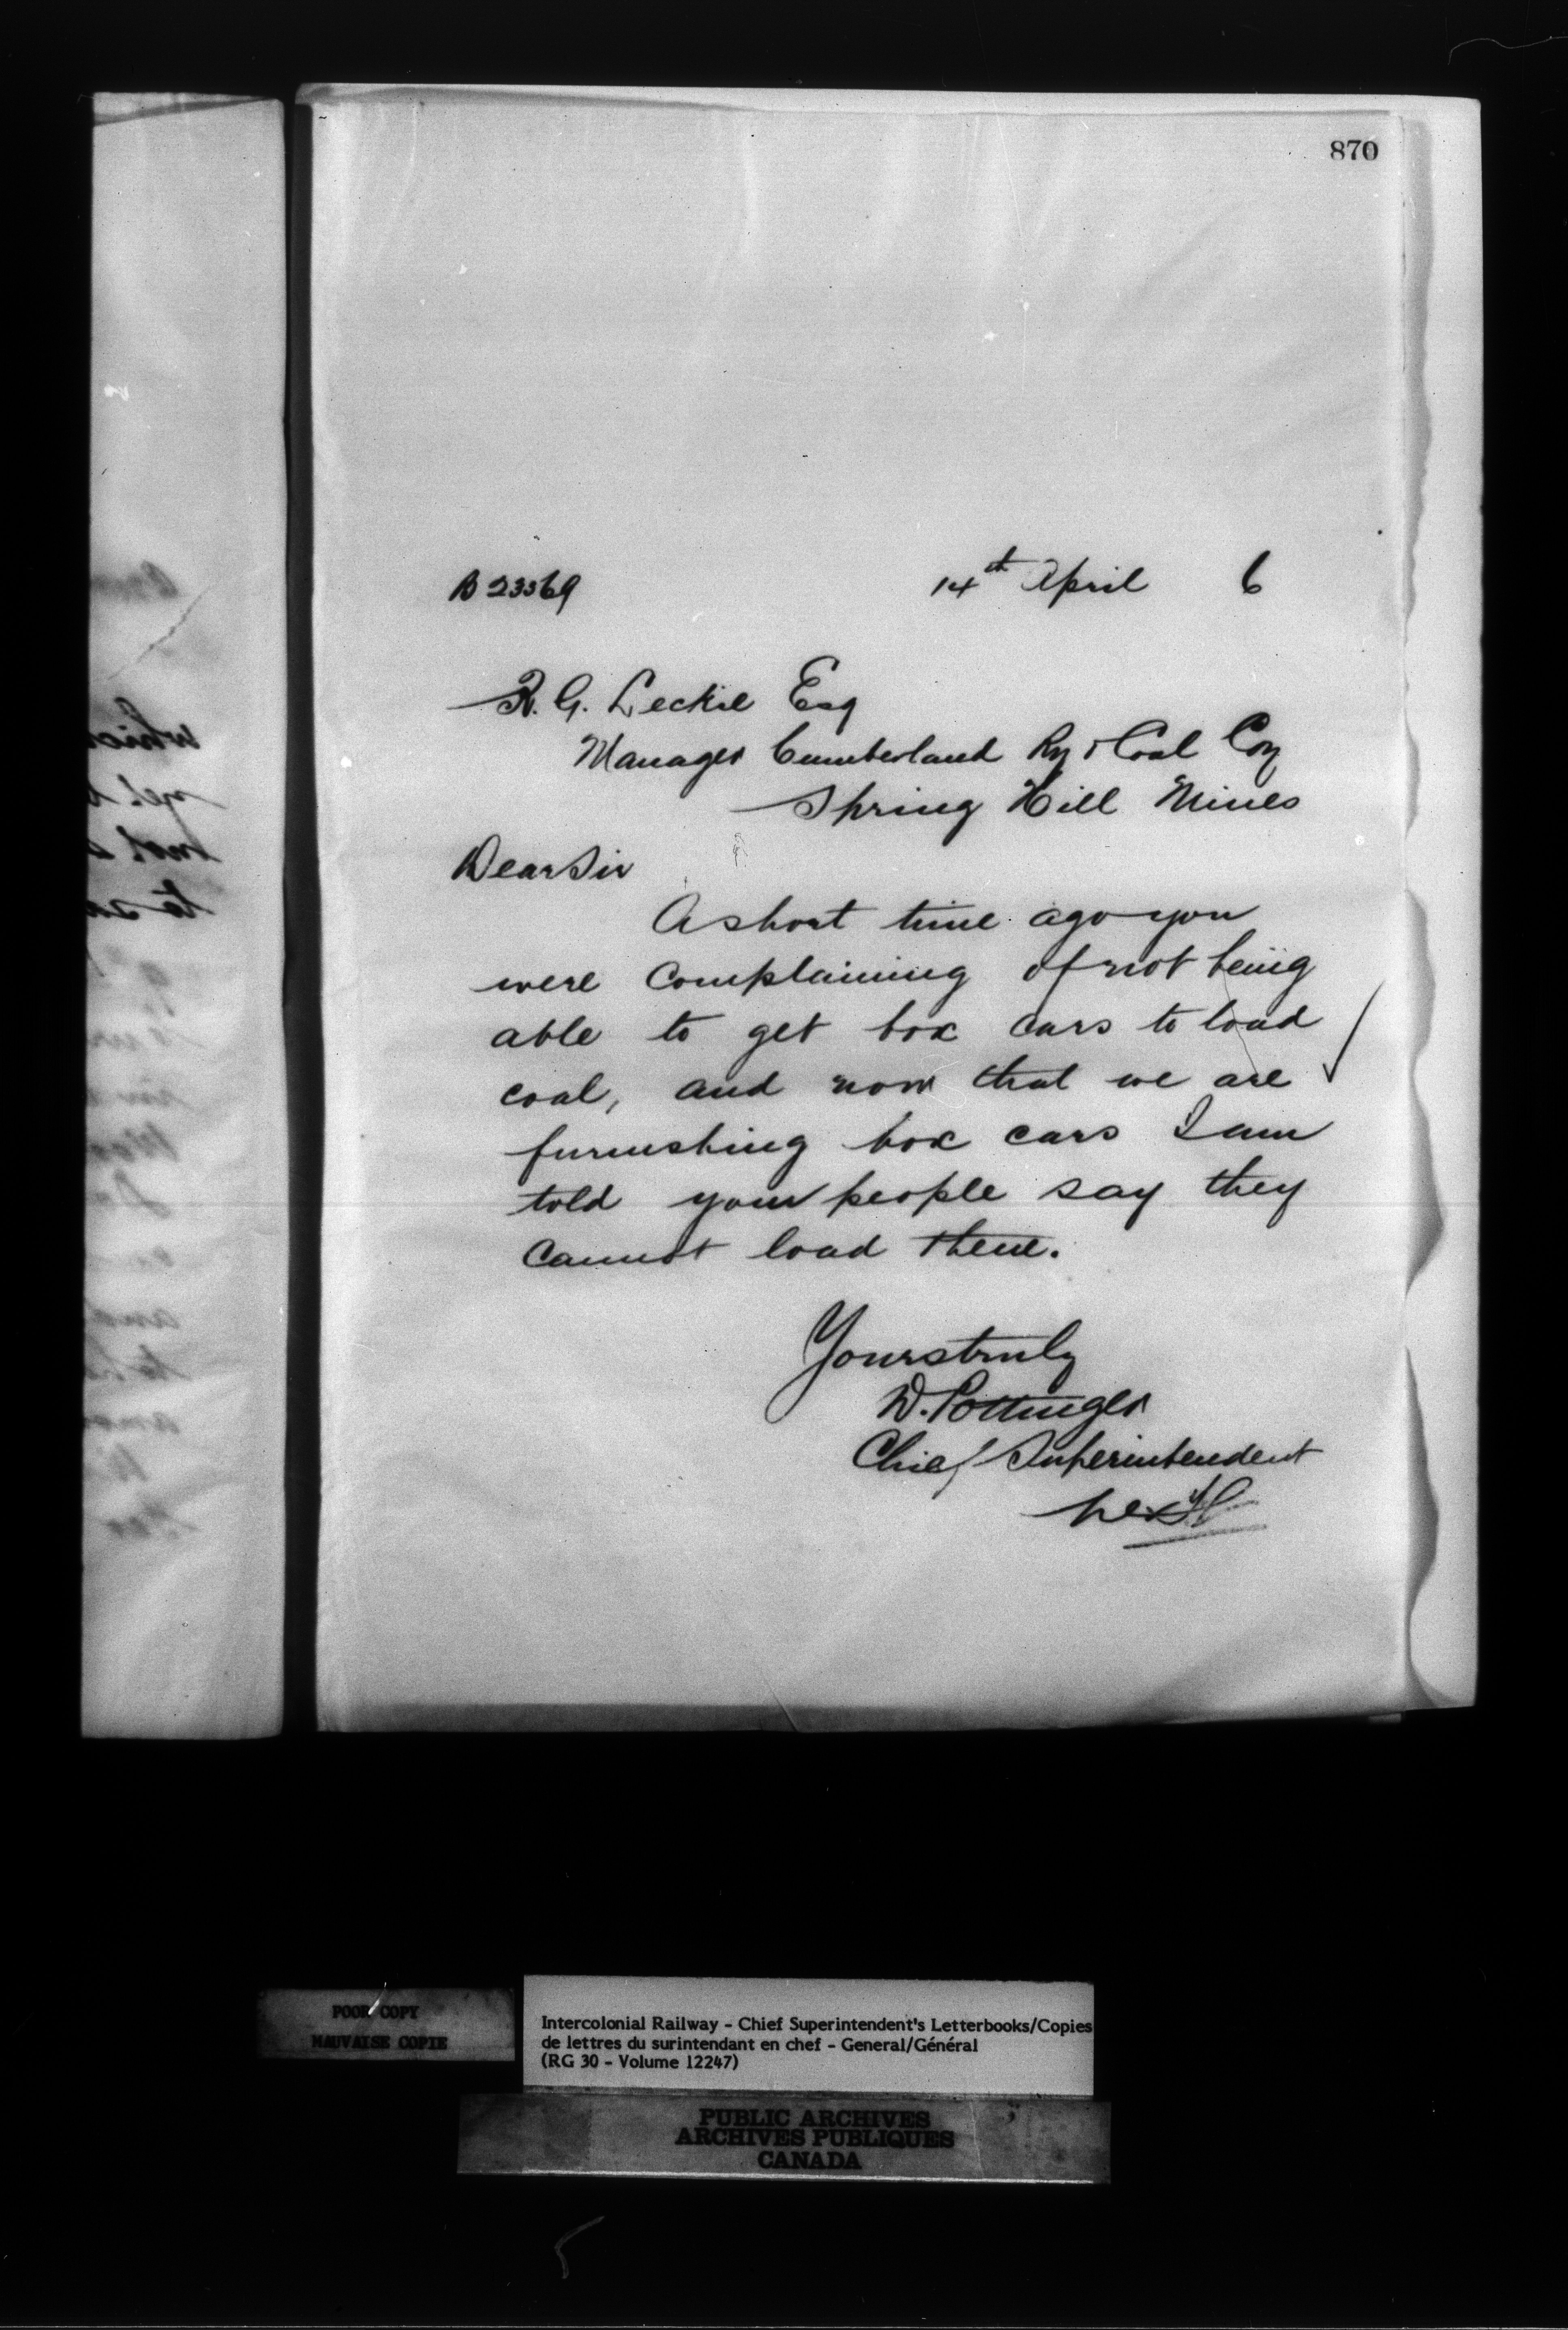 870
B 23369 14th April 6
R. G. Leckie Esq
Manager Cumberland Ry & Coal Coy
Spring Hill Mines
Dear Sir
A short time ago you
were complaining of not being
able to get box cars to load
coal, and now that we are
furnishing box cars I am
told your people say they
cannot load them.
Yours truly
D. Pottinger
Chief Superintendent
POOR COPY
MAUVAISE COPIE
Intercolonial Railway - Chief Superintendent's Letterbooks/Copies
de lettres du surintendant en chef - General/Général
(RG 30 - Volume 12247)
PUBLIC ARCHIVES
ARCHIVES PUBLIQUES
CANADA